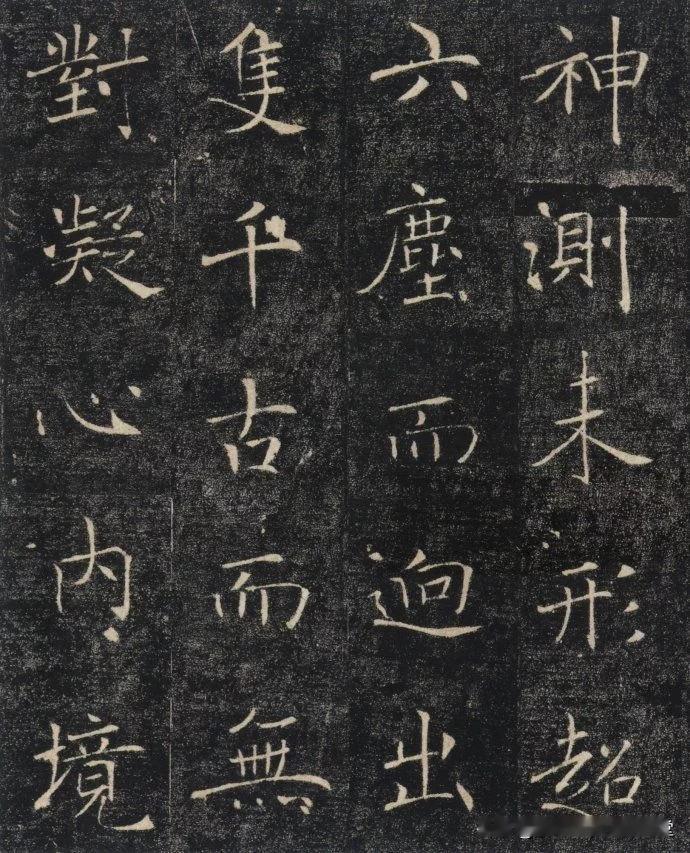 神測未形超
六塵而迥出
隻千古而無
對凝心內境